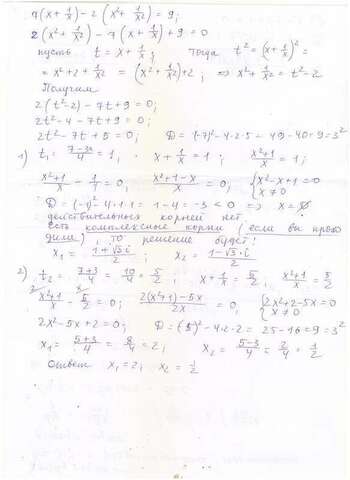 7(x + 1/x) - 2(x² + 1/x²) = 9;
2(x² + 1/x²) - 7(x + 1/x) + 9 = 0
пусть t = x + 1/x; Тогда t² = (x + 1/x)² =
= x² + 2 + 1/x² = (x² + 1/x²) + 2; ⇒ x² + 1/x² = t² - 2
Получим
2(t² - 2) - 7t + 9 = 0;
2t² - 4 - 7t + 9 = 0;
2t² - 7t + 5 = 0; D = (-7)² - 4·2·5 = 49 - 40 = 9 = 3²
1) t₁ = (7-3)/4 = 1, x + 1/x = 1; (x²+1)/x = 1;
(x²+1)/x - 1/1 = 0; (x²+1-x)/x = 0; { x² - x + 1 = 0
x ≠ 0
D = (-1)² - 4·1·1 = 1 - 4 = -3 < 0 ⇒ x = ∅
действительных корней нет.
Есть комплексные корни (если вы прохо
дили), то решение будет:
x₁ = (1+√3·i)/2; x₂ = (1-√3·i)/2
2) t₂ = (7+3)/4 = 10/4 = 5/2, x + 1/x = 5/2, (x²+1)/x = 5/2
(x²+1)/x - 5/2 = 0; (2(x²+1) - 5x)/2x = 0, { 2x² + 2 - 5x = 0
x ≠ 0
2x² - 5x + 2 = 0; D = (5)² - 4·2·2 = 25 - 16 = 9 = 3²
x₁ = (5+3)/4 = 8/4 = 2; x₂ = (5-3)/4 = 2/4 = 1/2
Ответ x₁ = 2; x₂ = 1/2